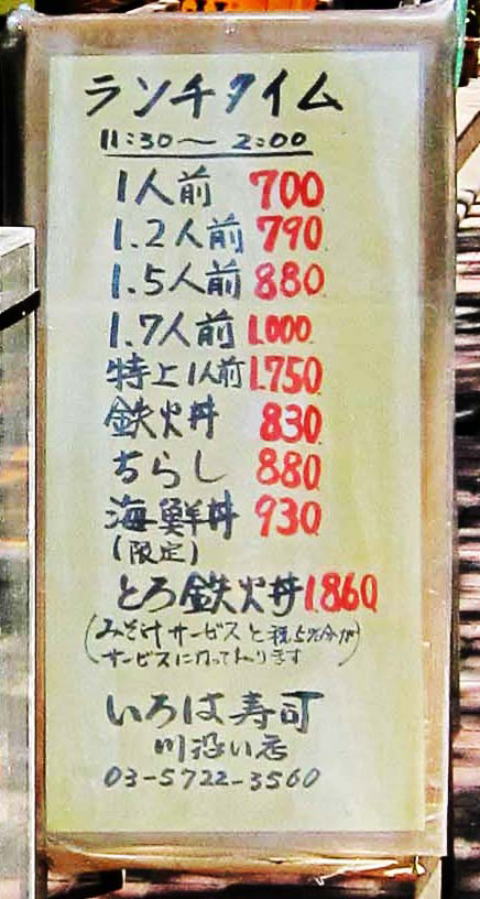 ランチタイム
11:30〜2:00
1人前 700
1.2人前 790
1.5人前 880
1.7人前 1.000
特上1人前 1.750
鉄火丼 830
ちらし 880
海鮮丼 930
(限定)
とろ鉄火丼 1.860
(みそ汁サービスと税5%分が
サービスになっております)
いろは寿司
川沿い店
03-5722-3560